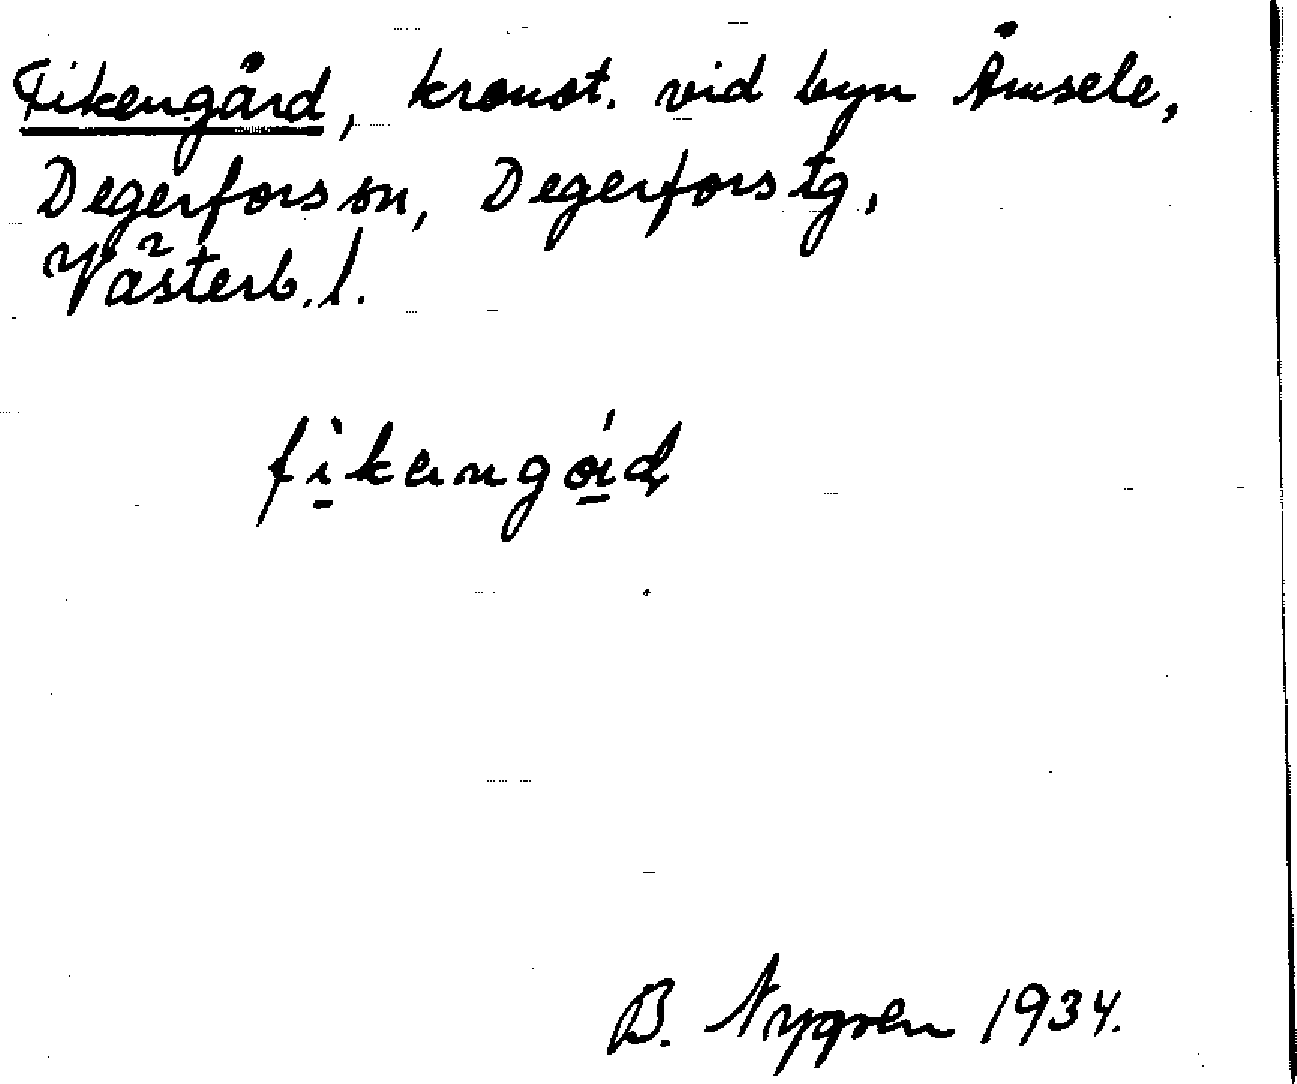 Fikengård, kronot. vid byn Åmsele,
Degerfors sn, Degerfors tg,
Västerb. l.
fìkengód
B. Nygren 1934.